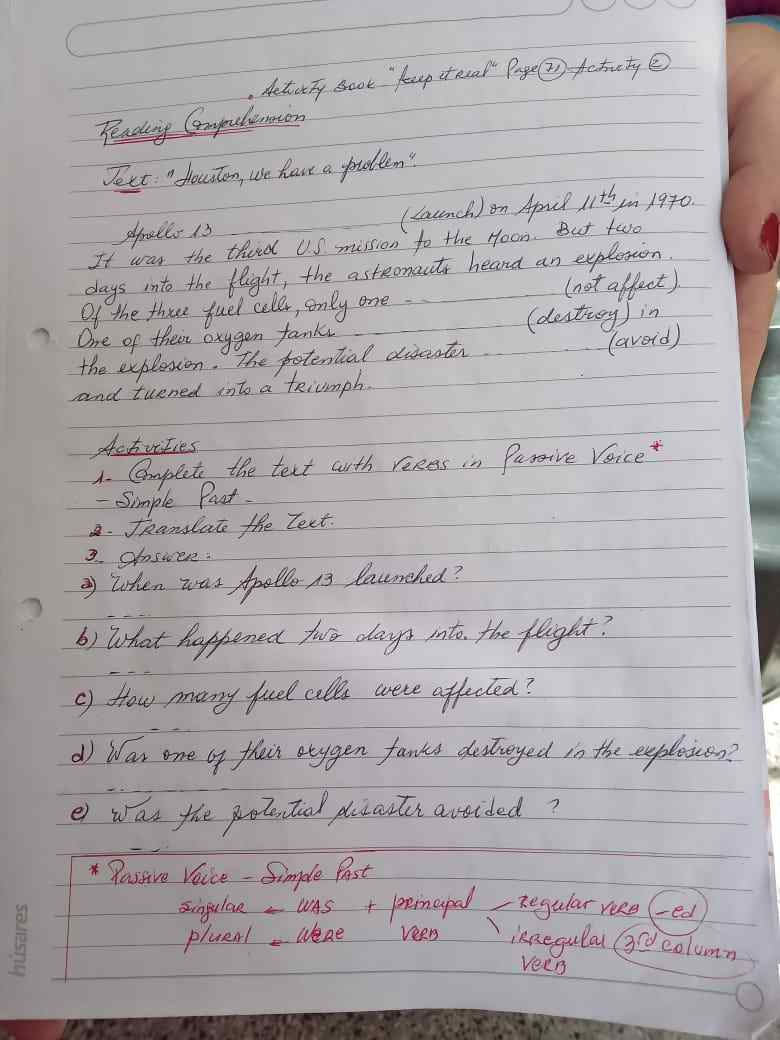 . Activity Book "Keep it real" Page 71 Activity 2
Reading Comprehension
Text: "Houston, we have a problem".
Apollo 13 ____________ (Launch) on April 11th in 1970.
It was the third U.S. mission to the Moon. But two
days into the flight, the astronauts heard an explosion.
Of the three fuel cells, only one ____________ (not affect).
One of their oxygen tanks ____________ (destroy) in
the explosion. The potential disaster ____________ (avoid)
and turned into a triumph.
Activities
1- Complete the text with verbs in Passive Voice *
- Simple Past -
2- Translate the Text.
3- Answer:
a) When was Apollo 13 launched?
- - -
b) What happened two days into the flight?
- - -
c) How many fuel cells were affected?
- - -
d) Was one of their oxygen tanks destroyed in the explosion?
- - -
e) Was the potential disaster avoided ?
- - -
* Passive Voice - Simple Past
singular ← WAS + principal - Regular verb -ed
plural ← Were verb \ irregular 3rd column
verb
húsares